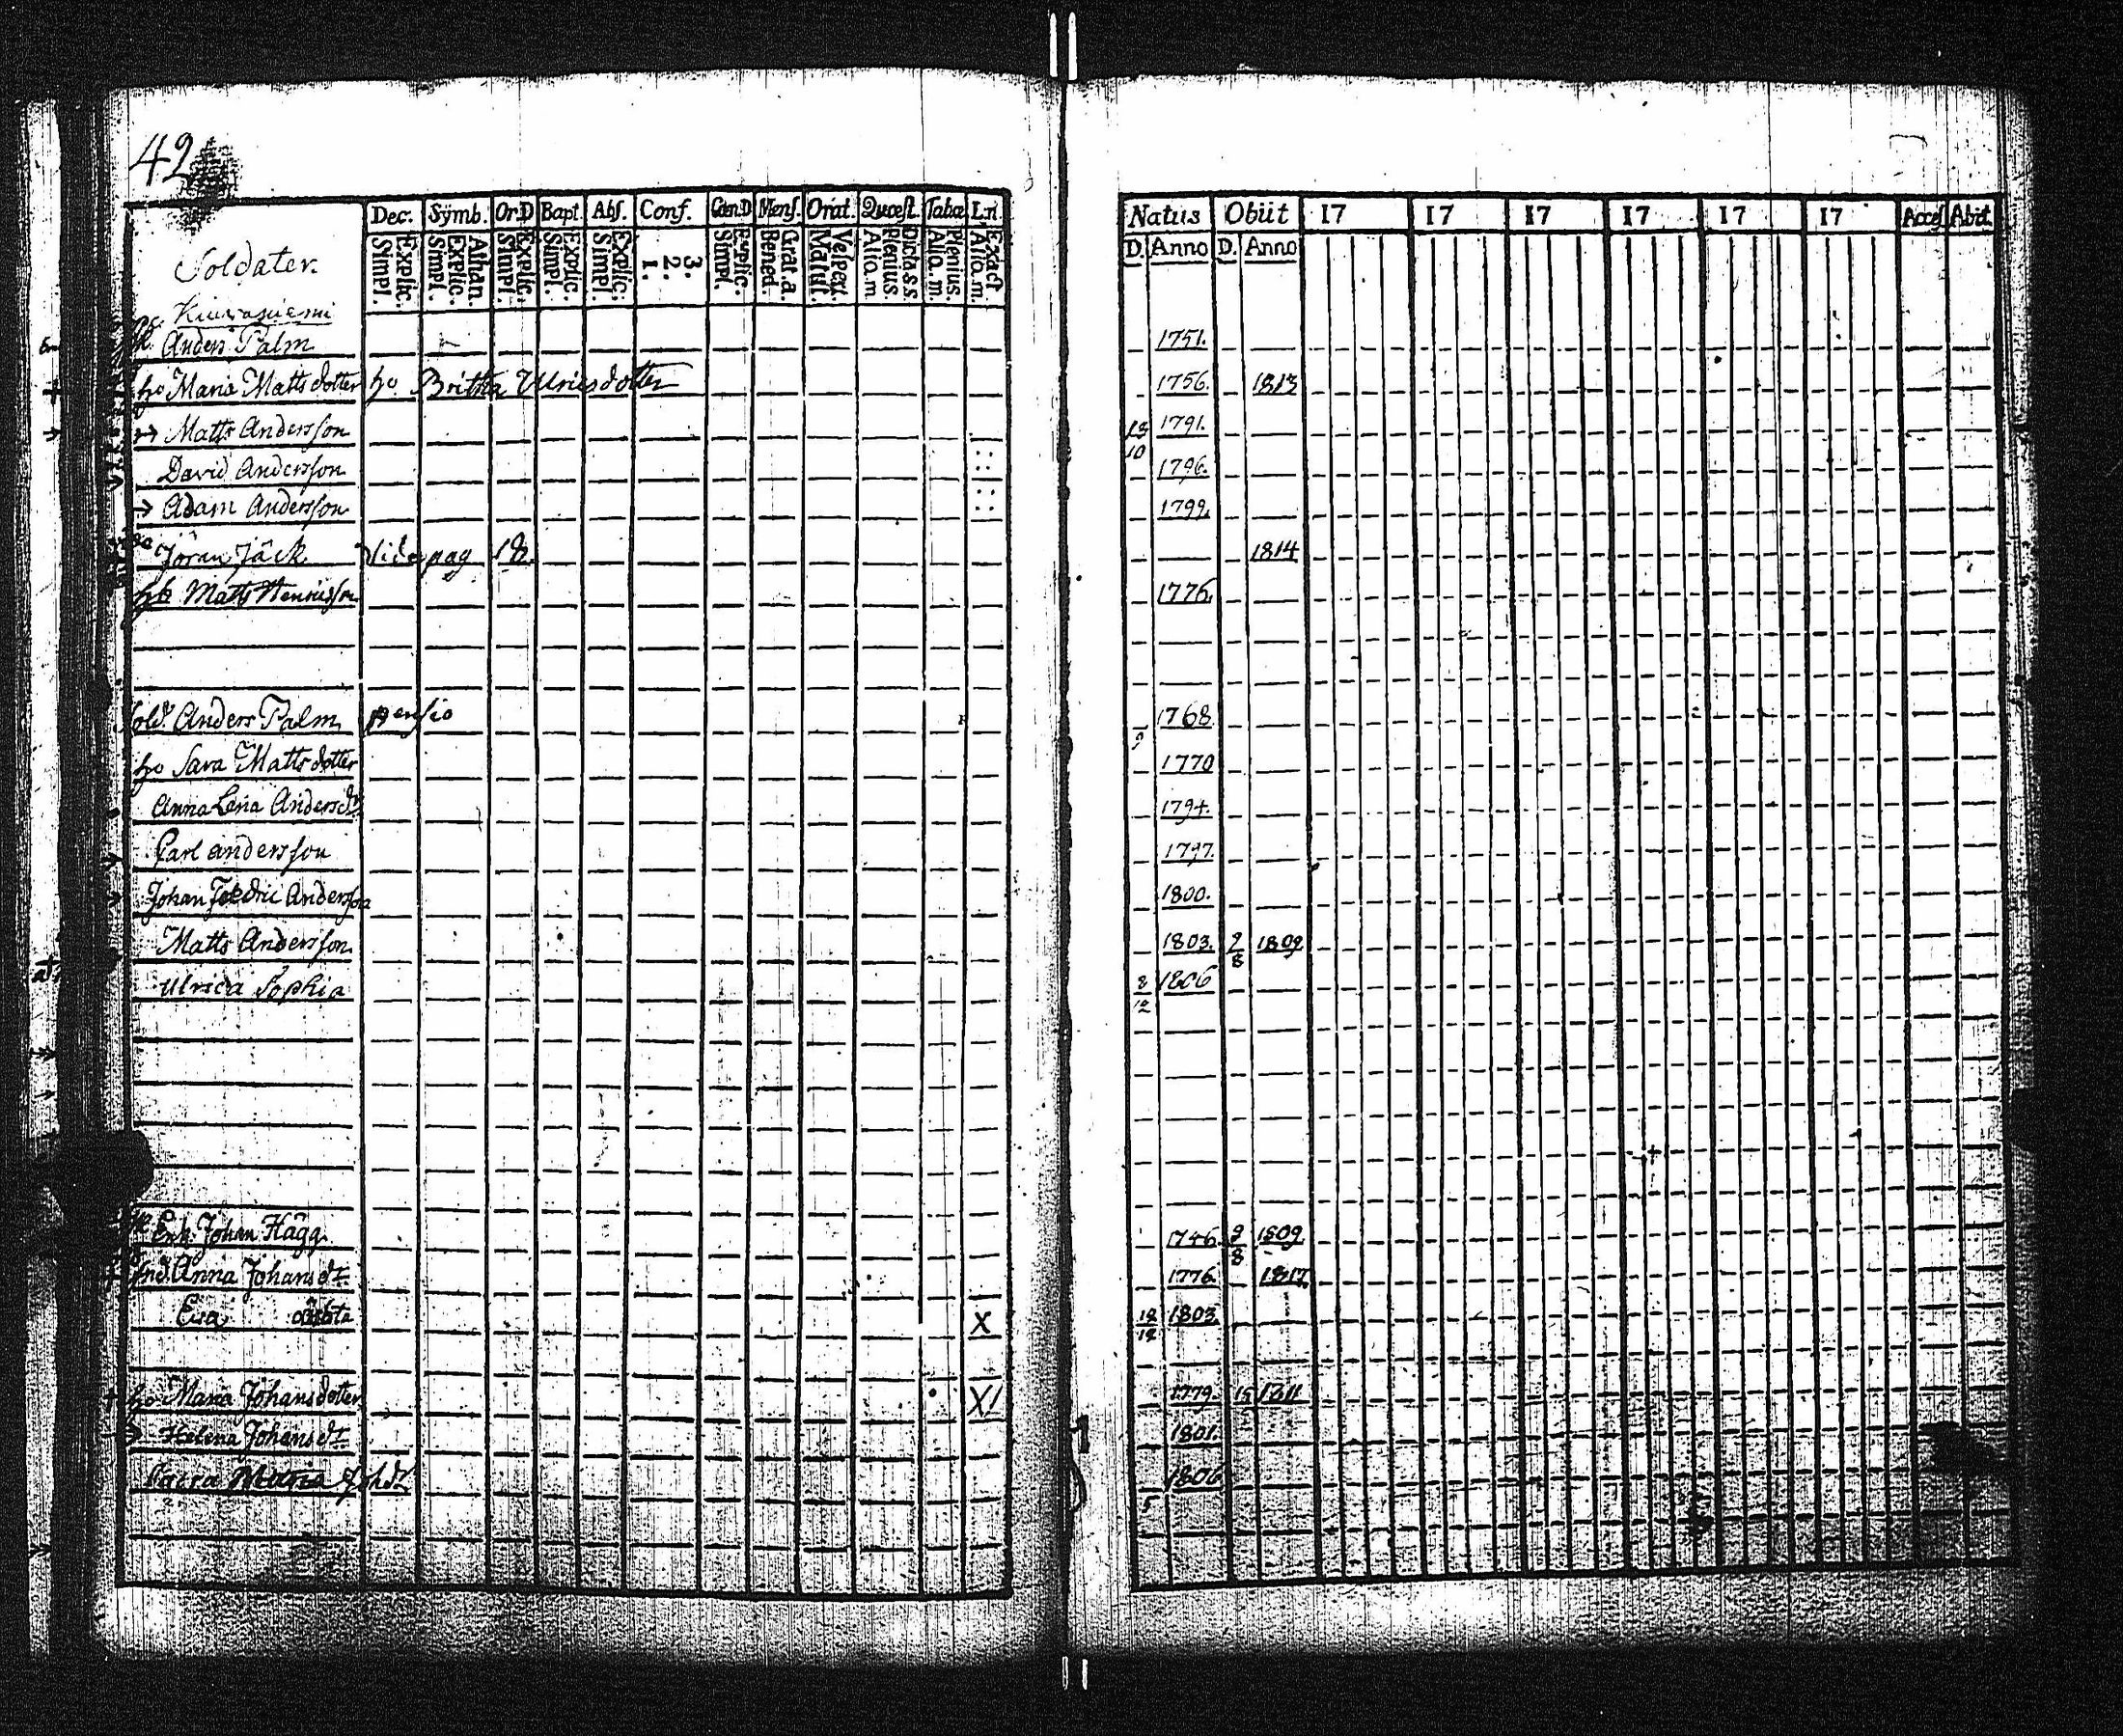 42
Dec. Symb. Or.D Bapt. Abs. Conf. Cœn.D Mens. Orat. Quæst. Tabæ L.n.
Explic. Simpl. Athan. Explic. Simpl. Explic. Simpl. Explic. Simpl. Explic. Simpl. 3. 2. 1. Explic. Simpl. Grat.a. Bened. Vespert. Matut. Dict.s.s. Plenius. Alio.m. Plenius. Alio.m. Exact Alio.m.
Natus Obiit 17 17 17 17 17 17 Acces Abit.
D. Anno D. Anno
Soldater.
Kiurasniemi
Anders Palm 1751.
ho Maria Mattsdotter ho Britha Ulricsdotter 1756. 1813
Matts Andersson 13/10 1791.
David Andersson 1796.
Adam Andersson 1799.
Jöran Jäck Vide pag 18. 1814
Matts Henricsson 1776.
Sold. Anders Palm pensio 1768.
ho Sara Mattsdotter 1770
Anna Lena Andersdr 1794.
Carl Andersson 1797.
Johan Fredric Andersson 1800.
Matts Andersson 1803. 2/8 1809
Ulrica Sophia 8/12 1806
Enk. Johan Hägg. 1746. 2/8 1809
Anna Johansdr 1776. 1817
Eva oächta X 18/12 1803.
ho Maria Johansdotter XI 1779. 15 1811
Helena Johansdr 1801.
Maria Johdr 1806